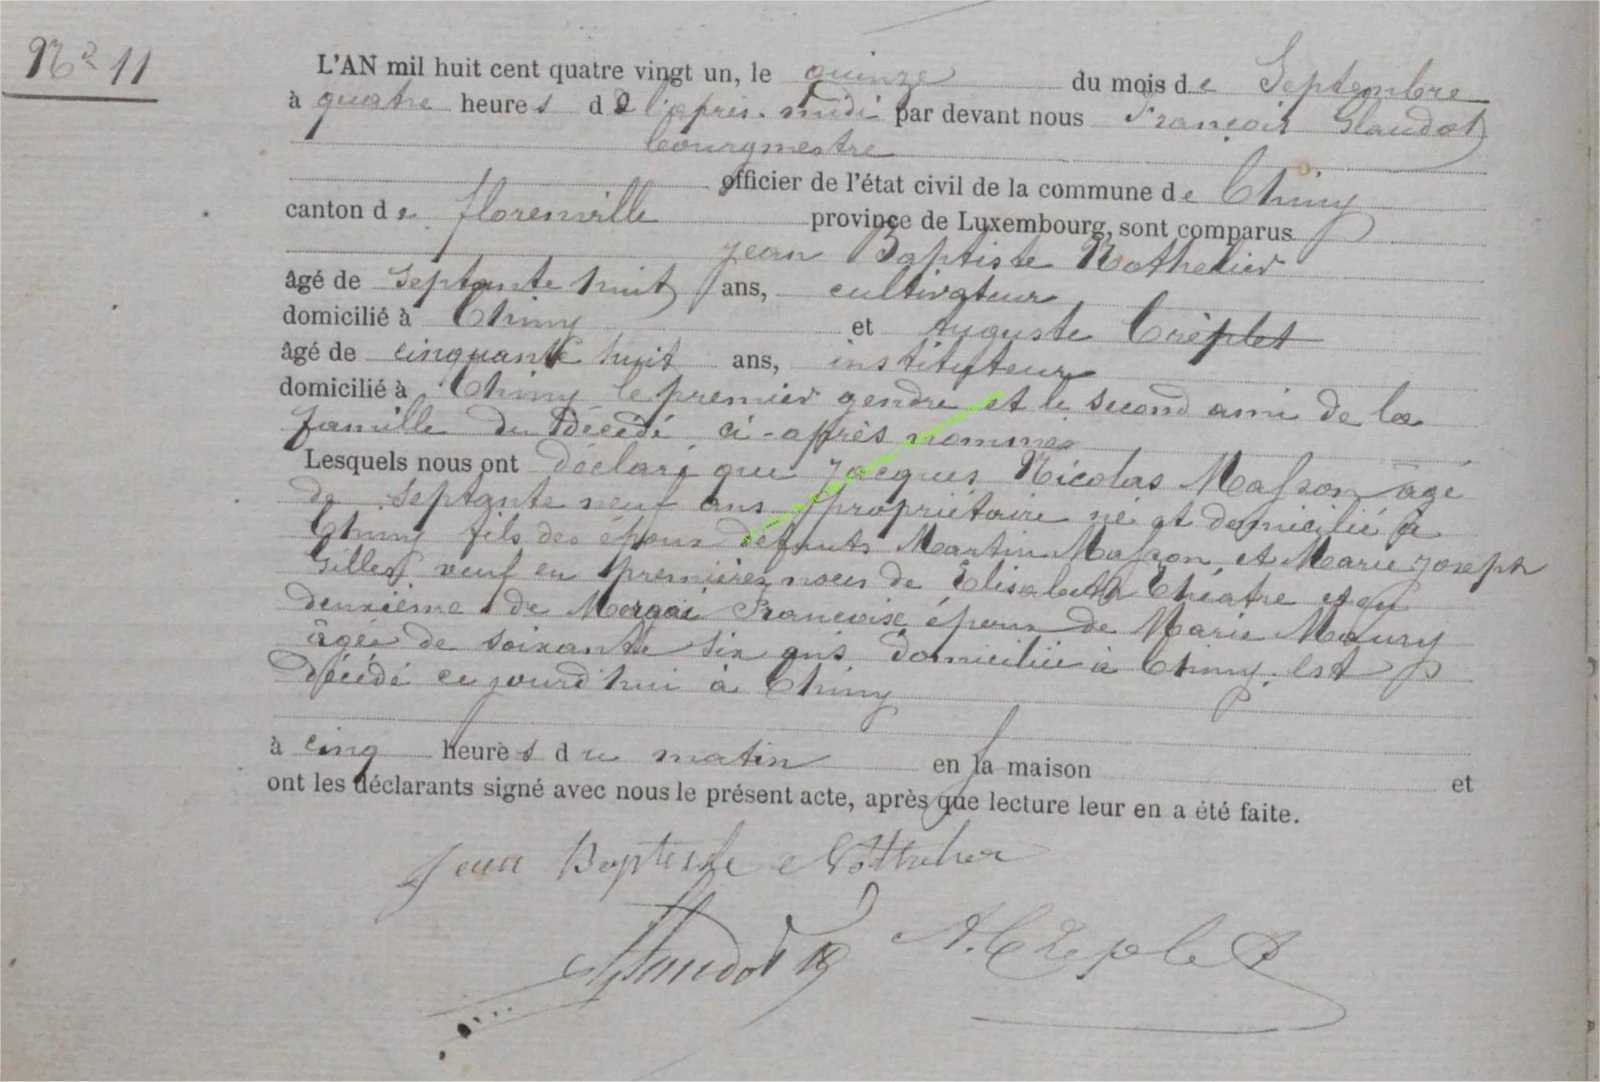 No 11
L'AN mil huit cent quatre vingt un, le quinze du mois de Septembre
à quatre heures de l'après-midi par devant nous François Glaudot
bourgmestre
officier de l'état civil de la commune de Chiny
canton de florenville province de Luxembourg, sont comparus
Jean Baptiste Nothelier
âgé de septante huit ans, cultivateur
domicilié à Chiny et Auguste Crèplet
âgé de cinquante huit ans, instituteur
domicilié à Chiny le premier gendre et le second ami de la
famille du décédé ci-après nommé
Lesquels nous ont déclaré que Jacques Nicolas Masson âgé
de septante neuf ans propriétaire né et domicilié à
Chiny fils des époux défunts Martin Masson et Marie Joseph
Gilles veuf en premières noces de Elisabeth Théatre et en
deuxième de Françoise époux de Marie Maury
âgée de soixante six ans domiciliée à Chiny, est
décédé ce jourd'hui à Chiny
à cinq heures du matin en la maison et
ont les déclarants signé avec nous le présent acte, après que lecture leur en a été faite.
Jean Baptiste Nothelier
Glaudot A. Creplet